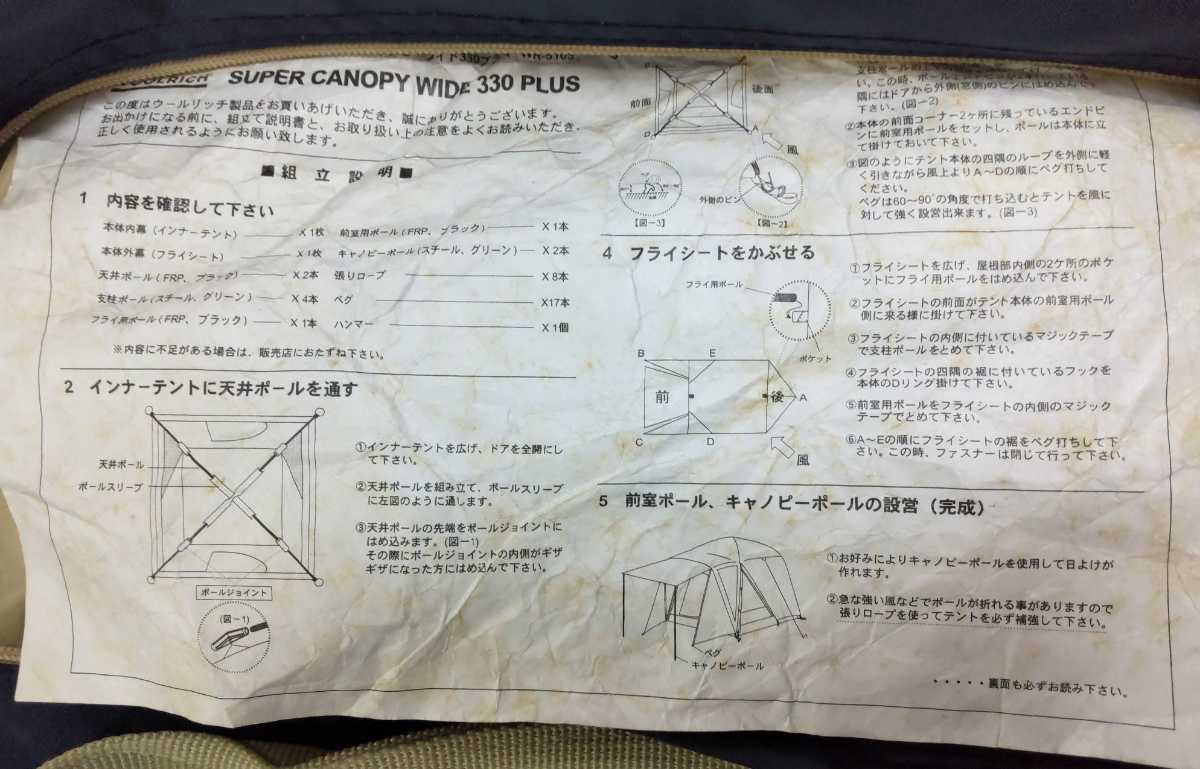 SUPER CANOPY WIDE 330 PLUS
この度はウールリッチ製品をお買いあげいただき、誠にありがとうございます。
お出かけになる前に、組立て説明書と、お取り扱い上の注意をよくお読みいただき、
正しく使用されるようにお願い致します。
■組立説明■
1 内容を確認して下さい
本体内幕(インナーテント) X1枚 前室用ポール(FRP、ブラック) X1本
本体外幕(フライシート) X1枚 キャノピーポール(スチール、グリーン) X2本
天井ポール(FRP、ブラック) X2本 張りロープ X8本
支柱ポール(スチール、グリーン) X4本 ペグ X17本
フライ用ポール(FRP、ブラック) X1本 ハンマー X1個
※内容に不足がある場合は、販売店におたずね下さい。
2 インナーテントに天井ポールを通す
天井ポール
ポールスリーブ
ポールジョイント
(図ー1)
①インナーテントを広げ、ドアを全開にし
て下さい。
②天井ポールを組み立て、ポールスリーブ
に左図のように通します。
③天井ポールの先端をポールジョイントに
はめ込みます。(図ー1)
その際にポールジョイントの内側がギザ
ギザになった方にはめ込んで下さい。
前面
後面
A
風
外側のピン
【図ー3】
【図ー2】
い。この時、ポール
隅にはドアから外側(窓側)のピンにはめ込んで
下さい。(図ー2)
②本体の前面コーナー2ヶ所に残っているエンドピ
ンに前室用ポールをセットし、ポールは本体に立
て掛けておいて下さい。
③図のようにテント本体の四隅のループを外側に軽
く引きながら風上よりA～Dの順にペグ打ちして
ください。
ペグは60～90°の角度で打ち込むとテントを風に
対して強く設営出来ます。(図ー3)
4 フライシートをかぶせる
フライ用ポール
ポケット
B E
前 後 A
C D
風
①フライシートを広げ、屋根部内側の2ケ所のポケ
ットにフライ用ポールをはめ込んで下さい。
②フライシートの前面がテント本体の前室用ポール
側に来る様に掛けて下さい。
③フライシートの内側に付いているマジックテープ
で支柱ポールをとめて下さい。
④フライシートの四隅の裾に付いているフックを
本体のDリング掛けて下さい。
⑤前室用ポールをフライシートの内側のマジック
テープでとめて下さい。
⑥A～Eの順にフライシートの裾をペグ打ちして下
さい。この時、ファスナーは閉じて行って下さい。
5 前室ポール、キャノピーポールの設営(完成)
ペグ
キャノピーポール
①お好みによりキャノピーポールを使用して日よけが
作れます。
②急な強い風などでポールが折れる事がありますので
張りロープを使ってテントを必ず補強して下さい。
・・・・・裏面も必ずお読み下さい。